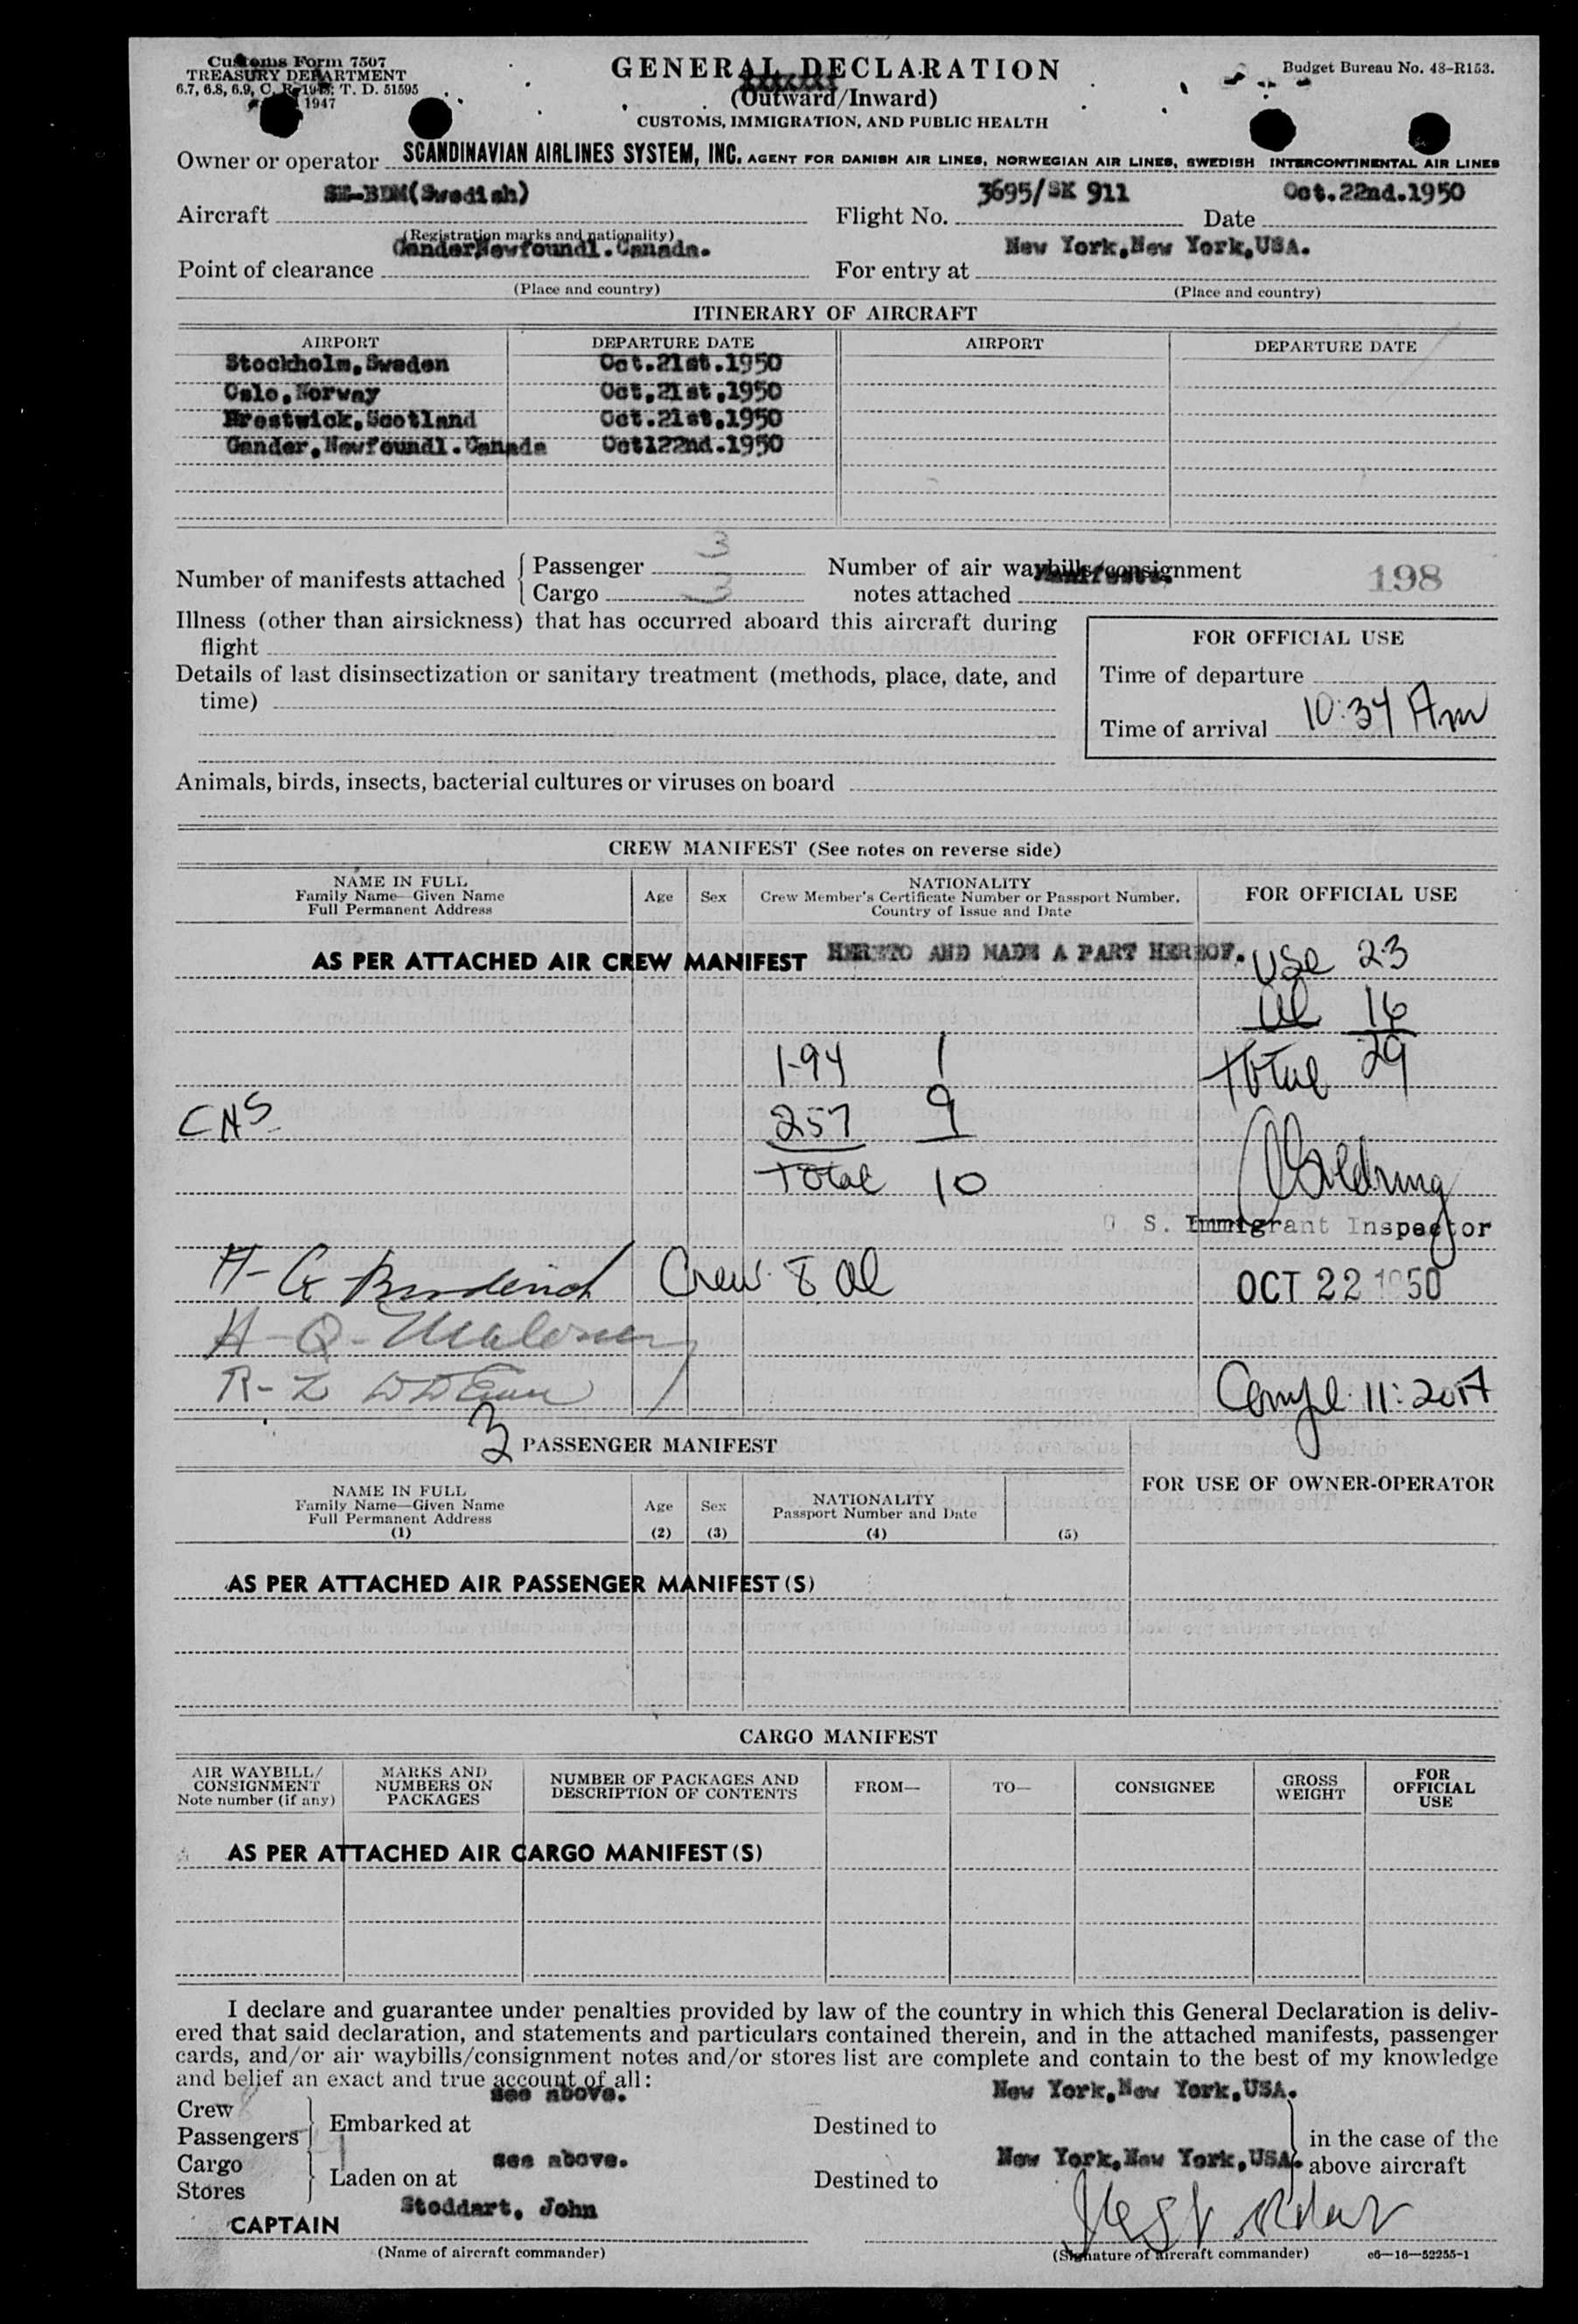 Customs Form 7507
TREASURY DEPARTMENT
6.7, 6.8, 6.9, C. R. 1943; T. D. 51595
1947
GENERAL DECLARATION
(Outward/Inward)
CUSTOMS, IMMIGRATION, AND PUBLIC HEALTH
Budget Bureau No. 48-R153.
Owner or operator SCANDINAVIAN AIRLINES SYSTEM, INC. AGENT FOR DANISH AIR LINES, NORWEGIAN AIR LINES, SWEDISH INTERCONTINENTAL AIR LINES
Aircraft SE-BDM(Swedish) Flight No. 3695/SK 911 Date Oct.22nd.1950
(Registration marks and nationality)
Point of clearance Gander,Newfoundl.Canada. For entry at New York,New York,USA.
(Place and country) (Place and country)
ITINERARY OF AIRCRAFT
AIRPORT DEPARTURE DATE AIRPORT DEPARTURE DATE
Stockholm,Sweden Oct.21st.1950
Oslo,Norway Oct,21st,1950
Prestwick,Scotland Oct.21st,1950
Gander,Newfoundl.Canada Oct122nd.1950
Number of manifests attached Passenger 3
Cargo 3
Number of air waybills/consignment
notes attached
198
Illness (other than airsickness) that has occurred aboard this aircraft during
flight
Details of last disinsectization or sanitary treatment (methods, place, date, and
time)
FOR OFFICIAL USE
Time of departure
Time of arrival 10:34 Am
Animals, birds, insects, bacterial cultures or viruses on board
CREW MANIFEST (See notes on reverse side)
NAME IN FULL
Family Name—Given Name
Full Permanent Address
Age Sex
NATIONALITY
Crew Member's Certificate Number or Passport Number,
Country of Issue and Date
FOR OFFICIAL USE
AS PER ATTACHED AIR CREW MANIFEST HERETO AND MADE A PART HEREOF.
USc 23
al 16
Total 29
1-94 1
CNS 257 9
Total 10
U. S. Immigrant Inspector
H-G Crew 8 al
OCT 22 1950
H-Q-
R-Z
Compl. 11:20A
3 PASSENGER MANIFEST
NAME IN FULL
Family Name—Given Name
Full Permanent Address
(1)
Age
(2)
Sex
(3)
NATIONALITY
Passport Number and Date
(4)
(5)
FOR USE OF OWNER-OPERATOR
AS PER ATTACHED AIR PASSENGER MANIFEST(S)
CARGO MANIFEST
AIR WAYBILL/
CONSIGNMENT
Note number (if any)
MARKS AND
NUMBERS ON
PACKAGES
NUMBER OF PACKAGES AND
DESCRIPTION OF CONTENTS
FROM—
TO—
CONSIGNEE
GROSS
WEIGHT
FOR
OFFICIAL
USE
AS PER ATTACHED AIR CARGO MANIFEST(S)
I declare and guarantee under penalties provided by law of the country in which this General Declaration is deliv-
ered that said declaration, and statements and particulars contained therein, and in the attached manifests, passenger
cards, and/or air waybills/consignment notes and/or stores list are complete and contain to the best of my knowledge
and belief an exact and true account of all:
Crew
Passengers
Embarked at see above. Destined to New York,New York,USA.
Cargo
Stores
Laden on at see above. Destined to New York,New York,USA.
in the case of the
above aircraft
CAPTAIN Stoddart, John
(Name of aircraft commander)
(Signature of aircraft commander)
c6—16—52255-1